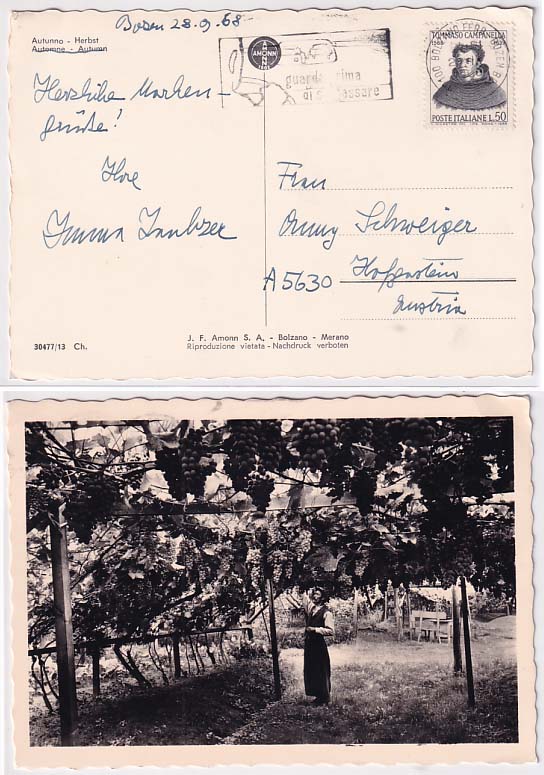 Bozen 28.9.68
Autunno - Herbst
Automne - Autumn
AMONN
guarda prima
di sorpassare
TOMMASO CAMPANELLA
1568
POSTE ITALIANE L.50
Herzliche Marken-
grüße!
Ihre
Imma
Frau
Anny Schweiger
A5630 Hofgastein
Austria
30477/13 Ch.
J. F. Amonn S. A. - Bolzano - Merano
Riproduzione vietata - Nachdruck verboten